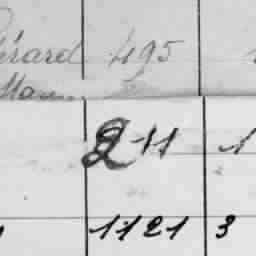 érard 495
211 1
1121 3